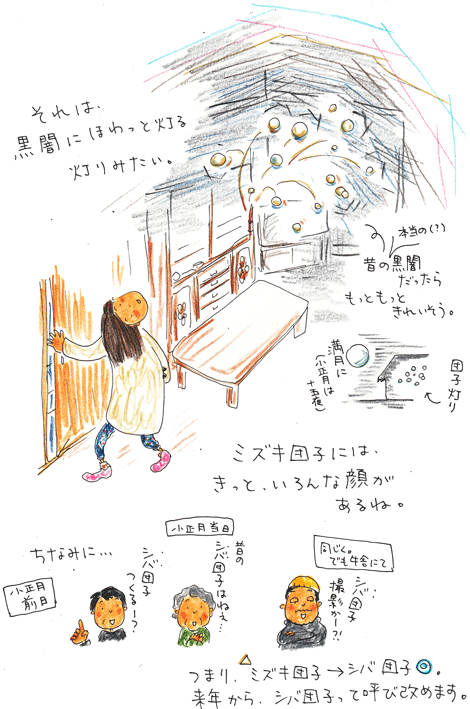 それは、
黒闇にほわっと灯る
灯りみたい。
本当の(?)
昔の黒闇
だったら
もっともっと
きれいそう。
満月に
(小正月は
十五夜)
団子灯り
ミズキ団子には、
きっと、いろんな顔が
あるね。
ちなみに…
小正月
前日
シバ団子
つくるー?
小正月当日
昔の
シバ団子はねえ…
同じく。
でも牛舎にて
シバ団子
撮影かー?!
つまり、ミズキ団子→シバ団子◎。
来年から、シバ団子って呼び改めます。